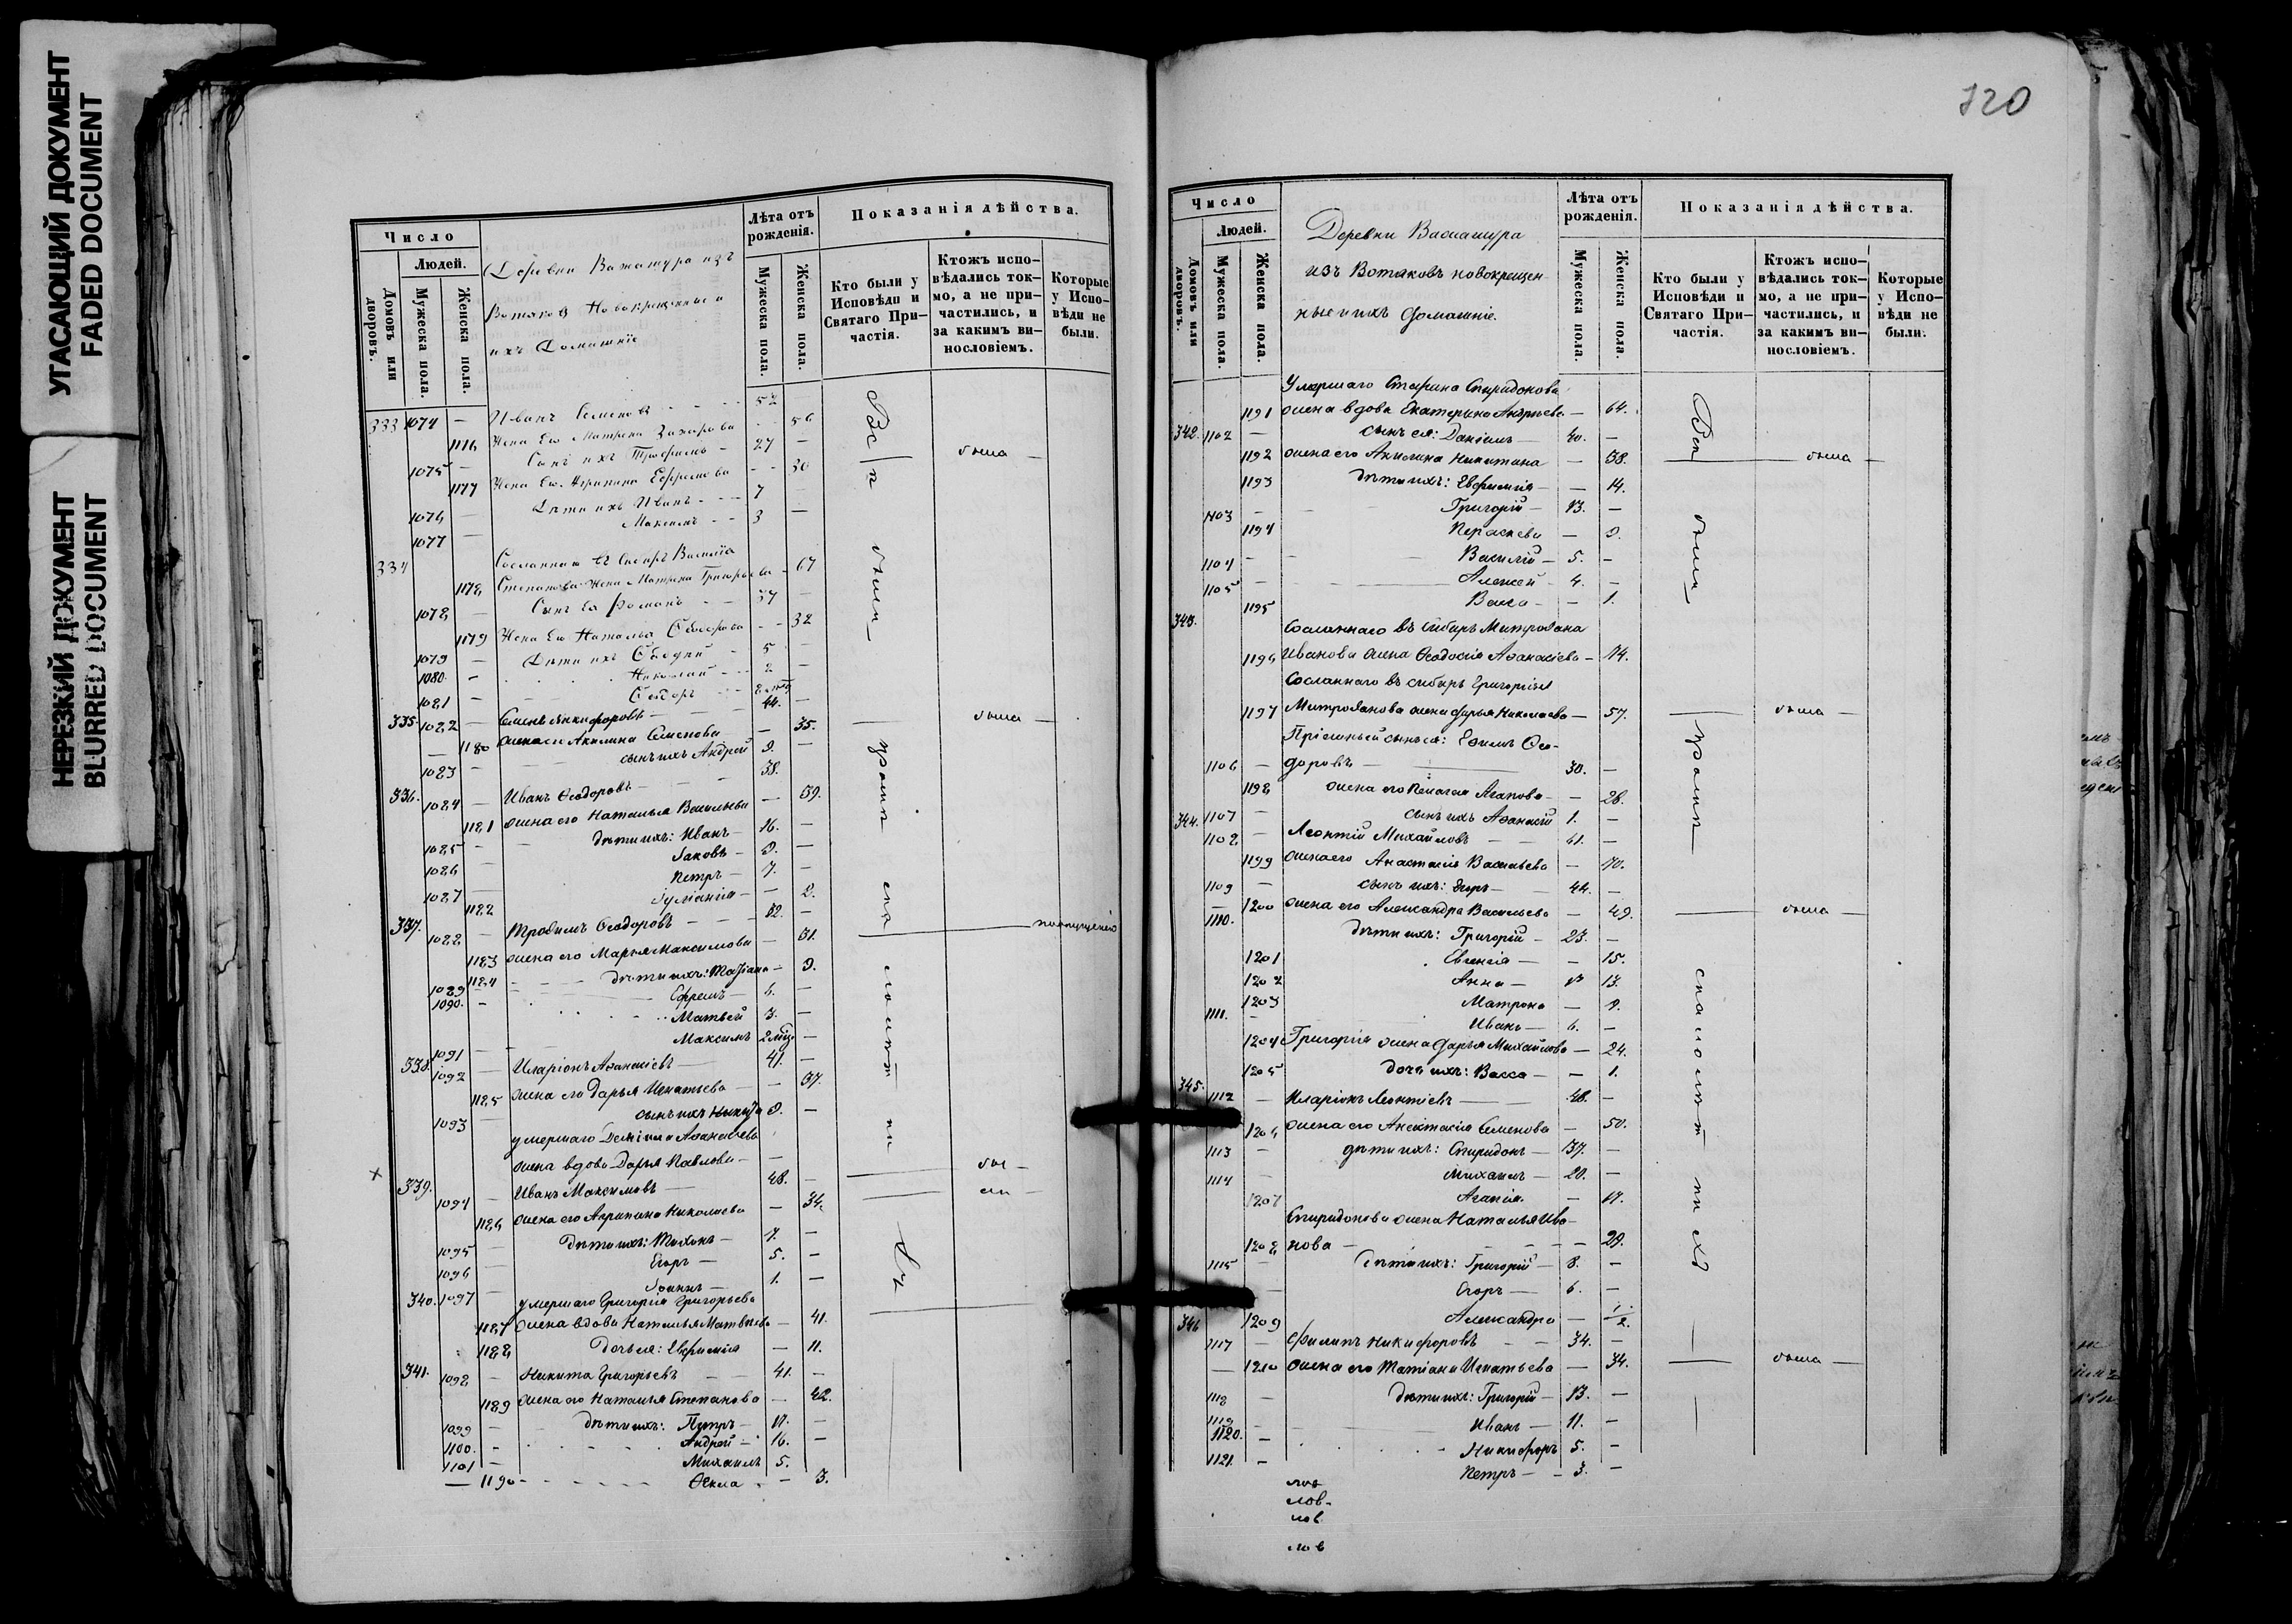 УГАСАЮЩИЙ ДОКУМЕНТ
FADED DOCUMENT
НЕРЕЗКИЙ ДОКУМЕНТ
BLURRED DOCUMENT
Число
Людей.
Домовъ или дворовъ.
Мужеска пола.
Женска пола.
Деревни Важашура изъ
Вотяковъ Новокрещенные и
ихъ Домашніе
Лѣта отъ рожденія.
Мужеска пола.
Женска пола.
Показанія дѣйства.
Кто были у Исповѣди и Святаго Причастія.
Ктожъ исповѣдались токмо, а не причастились, и за какимъ винословіемъ.
Которые у Исповѣди не были.
333 1074 — Иванъ Семеновъ 52
1176 Жена Его Матрена Захарова 56
1075 Сынъ ихъ Трофимъ — 27 —
1177 Жена Его Агрипина Ефремова 30
1076 — Дѣти ихъ Иванъ 7
1077 — Максимъ 3 —
334 Сосланнаго въ Сибирь Василія
1178 Степанова Жена Матрена Григорьева 67
1078 — Сынъ Ея Романъ 37 —
1179 Жена Его Наталья Ѳедорова 32
1079 — Дѣти ихъ 5 —
1080 — Николай 2 —
1081 — Ѳедоръ —
335. 1082 — Никифоровъ 44. —
1180 жена его Акилина Семенова — 35.
1083 — сынъ ихъ Андрей 9. —
336. 1084 — Иванъ Ѳеодоровъ — 38.
1181 жена его Наталья Васильева — 39.
1085 — дѣти ихъ: Иванъ — 16. —
1086 — Іаковъ — 9. —
1087 — Петръ — 7. —
1182 Іуліанія — — 2.
337. 1088 — Трофимъ Ѳеодоровъ 32. —
1183 жена его Марья Максимова — 31.
1184 дѣти ихъ: Татіана — 9.
1089 — Ефремъ — 6. —
1090. — Матвей 3. —
1091 — Максимъ 2 мѣс. —
338. 1092 — Иларіонъ Аѳанасіевъ — 41. —
1185 жена его Дарья Игнатьева — 37.
1093 — сынъ ихъ Никита 9. —
умершаго Аѳанасіева
жена вдова Дарья Павлова —
339. 1094 — Иванъ Максимовъ — 48. —
1186 жена его Агрипина Николаева — 34.
1095 — Дѣти ихъ: Тихонъ — 7. —
1096 — Егоръ — 5. —
1097 — Іоаннъ — 1. —
340. умершаго Григорія Григорьева
1187 жена вдова Наталья Матвѣева — 41.
1188 дочь ея: Евфимія — 11.
341. 1098 — Никита Григорьевъ — 41. —
1189 жена его Наталья Степанова — 42.
1099 — дѣти ихъ: Петръ — 17. —
1100. — Андрей — 16. —
1101 — Михаилъ 5. —
— 1190 Ѳекла — 3.
Вси были
была —
была —
по опущенію
120
Число
Людей.
Домовъ или дворовъ.
Мужеска пола.
Женска пола.
Деревни Важашура
изъ Вотяковъ новокрещен
ные и ихъ домашніе.
Лѣта отъ рожденія.
Мужеска пола.
Женска пола.
Показанія дѣйства.
Кто были у Исповѣди и Святаго Причастія.
Ктожъ исповѣдались токмо, а не причастились, и за какимъ винословіемъ.
Которые у Исповѣди не были.
Умершаго Спиридонова
1191 жена вдова Екатерина Андреева — 64.
342. 1102 — сынъ ея: Даніилъ — 40. —
1192 жена его Акилина Никитина — 38.
1193 дѣти ихъ: Евфимія — — 14.
1103 — Григорій — 13. —
1194 Параскева — 9.
1104 — Василій — 5. —
1105 — Алексей 4. —
1195 Васса — — 1.
343. Сосланнаго въ Сибирь Митрофана
1196 Иванова жена Ѳеодосія Аѳанасіева — 74.
Сосланнаго въ сибирь Григорія
1197 Митрофанова жена Дарья Николаева — 57.
Пріемный сынъ ея: Ефимъ Ѳео-
1106 — доровъ — 30. —
1198 жена его Пелагея Агапова — — 28.
1107 — сынъ ихъ Аѳанасій 1. —
344. 1108 — Леонтій Михайловъ 61. —
1199 жена его Анастасія Васильева — 70.
1109 — сынъ ихъ: Егоръ — 44. —
1200 жена его Александра Васильева — 49.
1110. — дѣти ихъ: Григорій — 23. —
1201 Евгенія — — 15.
1202 Анна — 13.
1203 Матрона — 9.
1111. — Иванъ — 6. —
1204 Григорія жена Дарья Михайлова — 24.
1205 дочь ихъ: Васса — — 1.
345. 1112 — Иларіонъ Леонтіевъ — 48. —
1206 жена его Анастасія Семенова — 50.
1113 — дѣти ихъ: Спиридонъ — 37. —
1114 — Михаилъ — 20. —
1207 Агапія — 17.
Спиридонова жена Наталья Ива-
1208 нова — — 29.
1115 — Дѣти ихъ: Григорій — 8. —
— Егоръ — 6. —
1209 Александра —
346 1117 — Филипъ Никифоровъ — 34. —
— 1210 жена его Татіана Игнатьева — 34.
1118 — дѣти ихъ: Григорій — 13. —
1119 — Иванъ — 11. —
1120. — Никифоръ 5. —
1121. — Петръ — 3. —
Вси были
была —
была —
была —
была —
лов
лов-
лов
лов